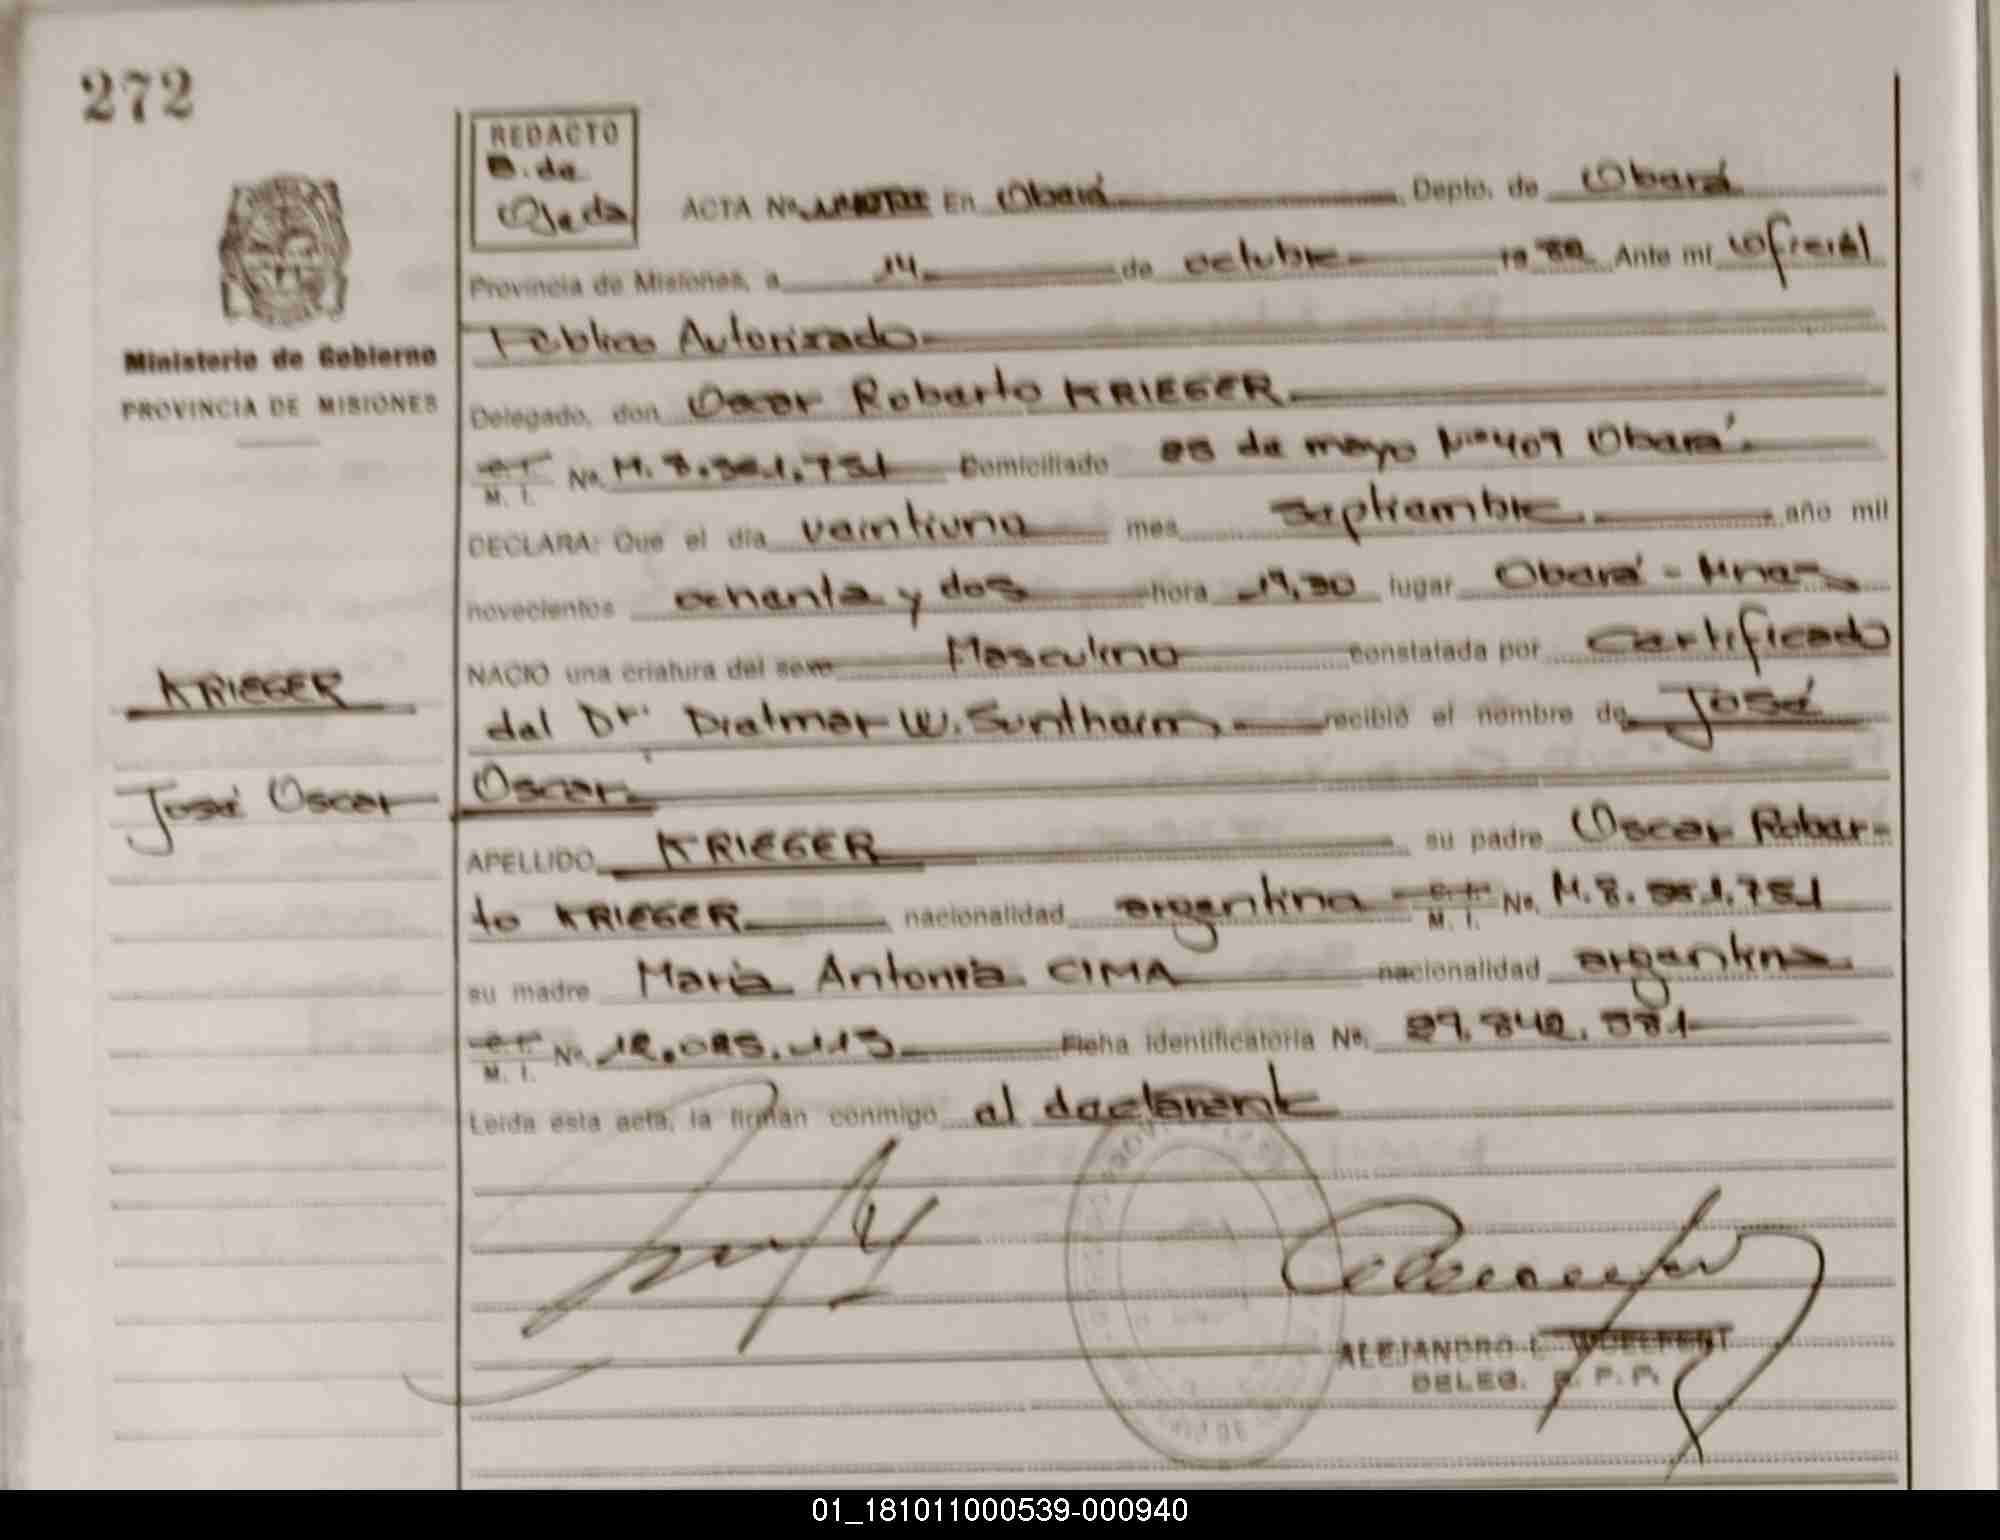 272
REDACTO
B. de
Ojeda
ACTA No. En Oberá Depto. de Oberá
Provincia de Misiones, a 14 de octubre 19 82 Ante mí Oficial
Público Autorizado
Ministerio de Gobierno
PROVINCIA DE MISIONES
Delegado, don Oscar Roberto KRIEGER
C.I. M. I. No. M. 8. 751 Domiciliado de mayo Nº 409 Oberá
DECLARA: Que el día veintiuno mes septiembre año mil
novecientos ochenta y dos hora 19,30 lugar Oberá - Mnes
NACIO una criatura del sexo Masculino constatada por Certificado
KRIEGER
del Dr. W. recibió el nombre de José
José Oscar
Oscar
APELLIDO KRIEGER su padre Oscar Rober-
to KRIEGER nacionalidad argentina C.I. M. I. No. M. 8. 751
su madre María Antonia CIMA nacionalidad argentina
C.I. M. I. No. Ficha identificatoria No. 29. 842.
Leída esta acta, la firman conmigo el declarante
ALEJANDRO
DELEG. R. P. P.
01_181011000539-000940